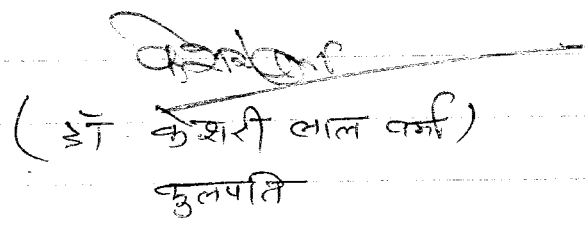 (डॉ केशरी लाल वर्मा)
कुलपति